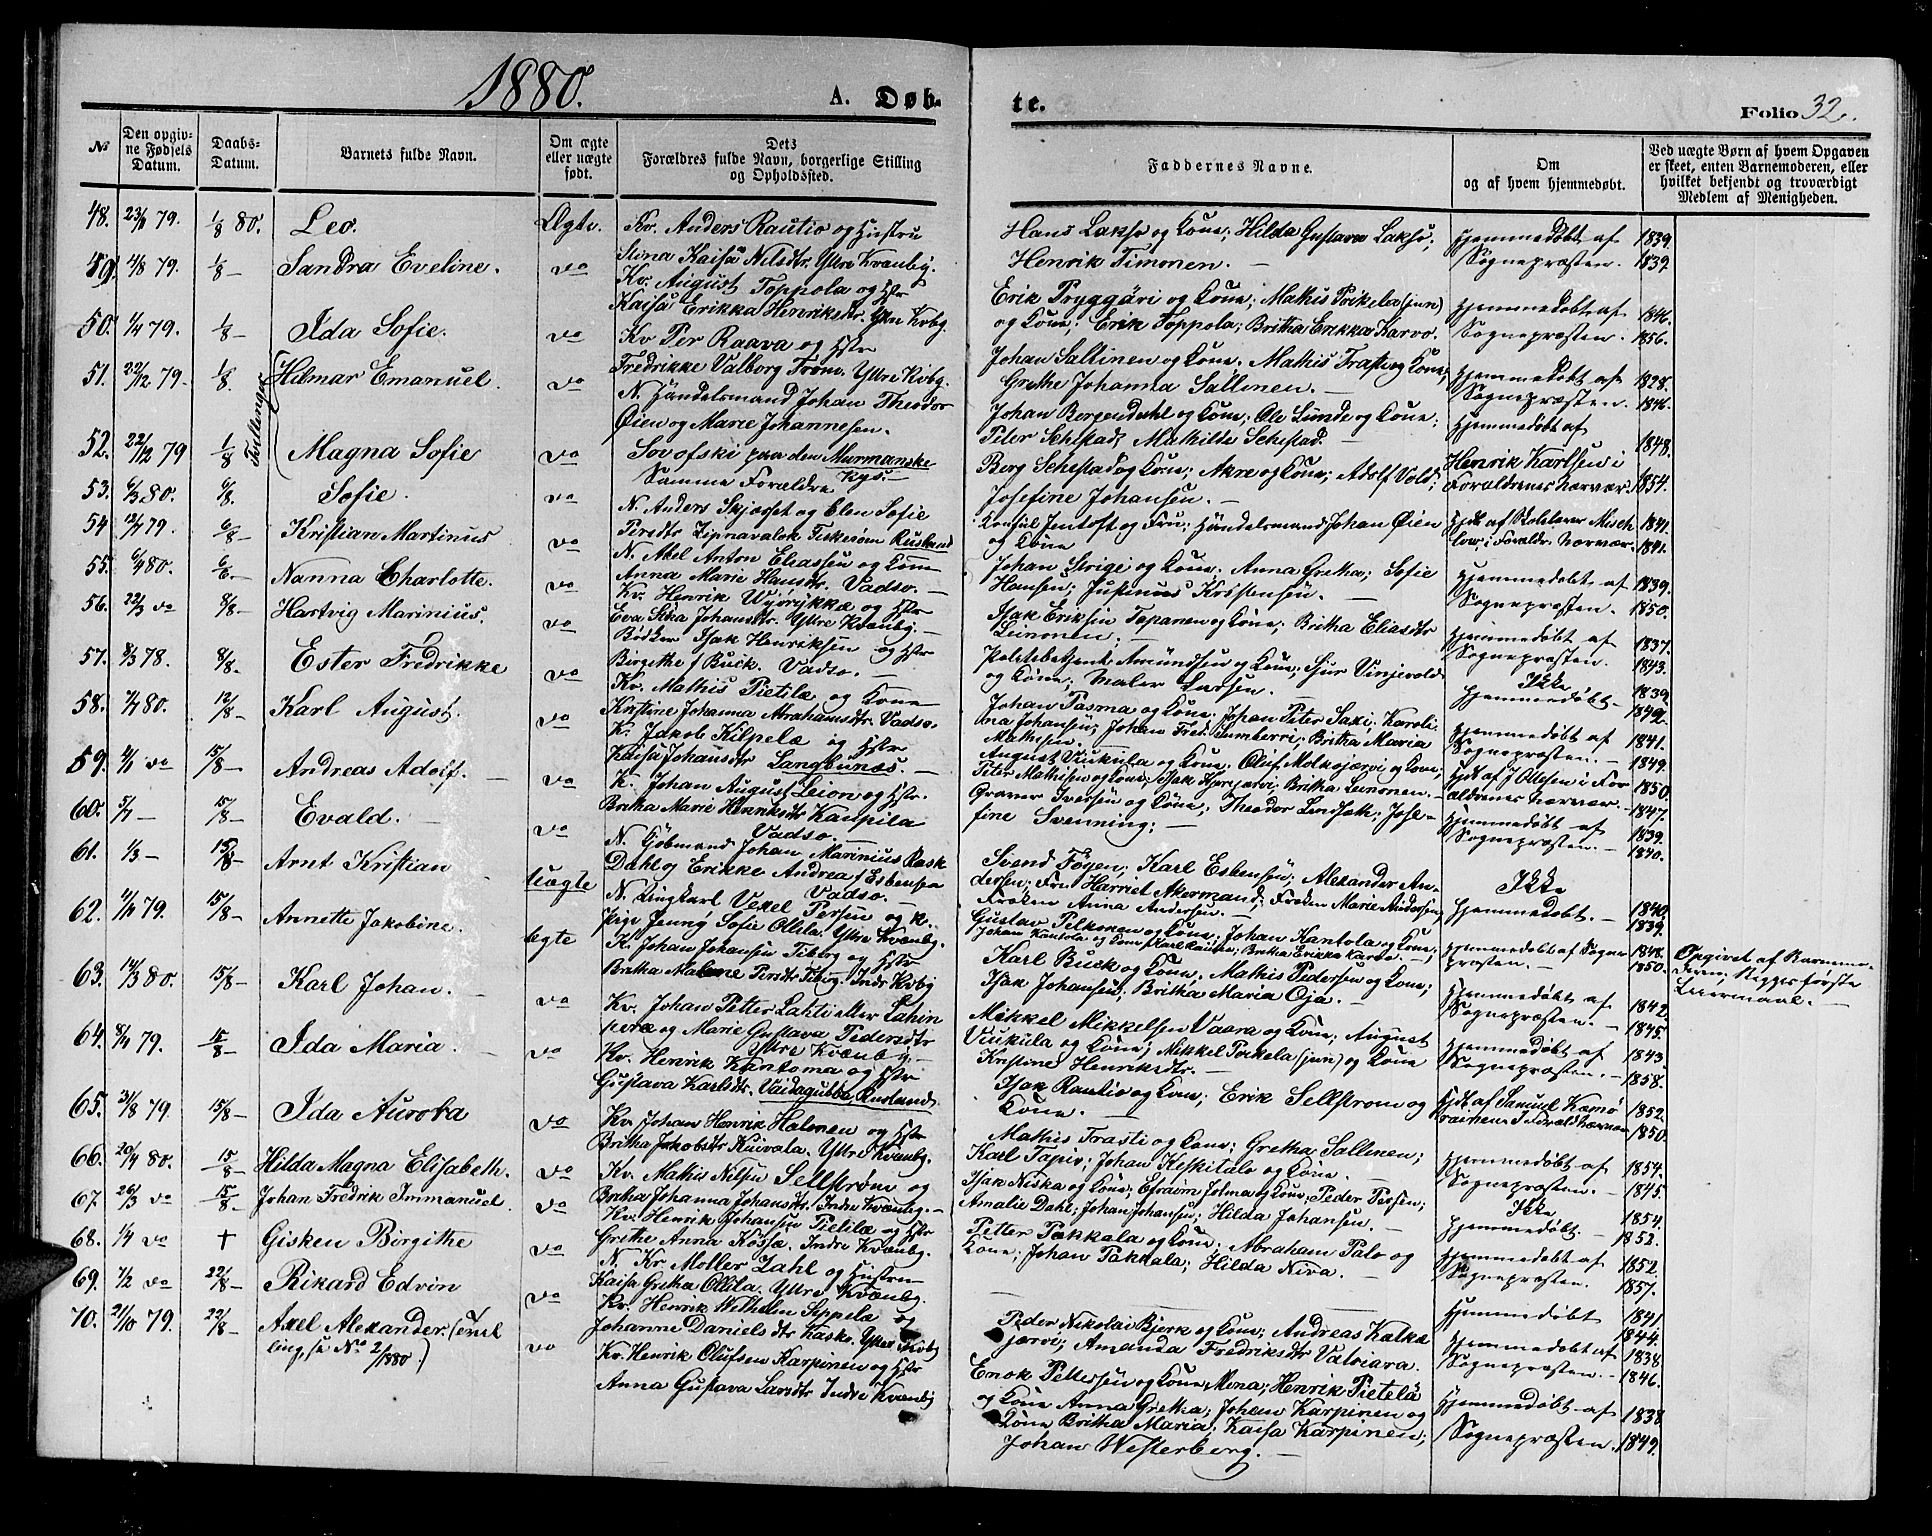 1880.
A. Døb-
te.
Folio 32.
№
Den opgiv-
ne Fødsels
Datum.
Daabs-
Datum.
Barnets fulde Navn.
Om ægte
eller uægte
født.
Dets
Forældres fulde Navn, borgerlige Stilling
og Opholdssted.
Faddernes Navne.
Om
og af hvem hjemmedøbt.
Ved uægte Børn af hvem Opgaven
er skeet, enten Barnemoderen, eller
hvilket bekjendt og troværdigt
Medlem af Menigheden.
48. 23/8 79. 1/8 80. Leo. Ægte.
Kv. Anders Rautio og Hustru
Stina Kaisa Nilsdtr. Ytre Kvænby.
Hans Lakso og Kone; Hilda Gustava Lakso;
Henrik Timonen. —
Hjemmedøbt af
Sognepræsten.
1839.
1839.
49. 4/8 79. 1/8 — Sandra Eveline. do
Kv. August Toppola og Hstr
Kaisa Erikka Henriksdtr. Ytre Kvbg.
Erik Pryggäri og Kone; Mathis Pirkela (jun)
og Kone; Erik Toppola; Britha Erikka Karvo.
Hjemmedøbt af
Sognepræsten.
1846.
1856.
50. 1/4 79. 1/8 — Ida Sofie. do
Kv Per Raava og Hstr
Fredrikke Valborg Tröm. Ytre Kvbg.
Johan Sallinen og Kone; Mathis Trasti og Kone;
Grethe Johanna Sallinen. —
Hjemmedøbt af
Sognepræsten.
1828.
1846.
51. 22/12 79. 1/8. Hilmar Emanuel. do
Tvillinger
N. Handelsmand Johan Theodor
Øien og Marie Johannesen.
Sovofski paa den Murmanske
Kyst. —
Johan Bergendahl og Kone; Ole Lunde og Kone;
Peter Sehestad; Mathilde Sehestad.
Hjemmedøbt af
Henrik Karlsen i
Forældrenes Nærvær.
1848.
1854.
52. 22/12 79 1/8 Magna Sofie do
Samme Forældre
Berg Sehestad og Kone; Akre og Kone; Adolf Vold;
Josefine Johansen. —
53. 6/3 80. 6/8. Sofie. do
N. Anders Skjærset og Elen Sofie
Persdtr Zipnavalok Fiskerøm Rusland
Konsul Jentoft og Fru; Handelsmand Johan Øien
og Kone
1841.
1841.
54. 12/7 79. 6/8 — Kristian Martinus do
N. Abel Anton Eliassen og Kone
Anna Marie Hansdtr. Vadsø. —
Johan Strige og Kone; Anna Gretha; Sofie
Hansen; Kristensen. —
Hjemmedøbt af
Sognepræsten.
1839.
1850.
55. 6/4 80. 6/8 —. Nanna Charlotte. do
Kv. Henrik og Hstr
Eva Stina Johansdtr. Ytre Kvænby. —
Isak Eriksen Tapanen og Kone; Britha Eliasdtr
Leinonen.
Hjemmedøbt af
Sognepræsten.
1837.
1843.
56. 22/3 do 8/8 — Hartvig Marinius. do
Bødker Isak Henriksen og Hstr
Birgithe f Buck. Vadsø. —
Politibetjent Amundsen og Kone; Sjur Vinjevold
og Kone; Maler Larsen.
Ikke
Hjemmedøbt —
1839.
1849.
57. 8/3 78. 8/8. Ester Fredrikke do
Kv. Mathis Pietilæ og Kone
Kristine Johanna Abrahamsdtr. Vadsø.
Johan Pasma og Kone; Johan Peter Saxi; Karoli-
na Johansen; Johan Fred. Tumberri; Britha Maria
Mathisen.
Hjemmedøbt af
Sognepræsten. —
1841.
1849.
58. 7/7 80. 12/8 — Karl August. do
K. Jakob Kilpelæ og Hstr
Kaisa Johansdtr Langbunæs. —
August Vuukula og Kone; Oluf Molkojærvi og Kone;
Peter Mathisen og Kone;
Hjdt. af J Ollesen i For
ældrenes Nærvær.
1850.
1847.
59. 4/1 do 15/8 — Andreas Adolf. — do
K. Johan August Leion og Hstr.
Britha Marie Henriksdtr Kaupila
Vadsø. —
Isak Hjerjærvi; Britha Leinonen. —
60. 5/7 — 15/8 — Evald. — do
N. Gjøbmand Johan Marinius Rask
Dahl og Erikke Andrea f Esbensen
Vadsø. —
Graver Iversen og Kone; Theodor Lindseth; Jose-
fine Svenning; —
Hjemmedøbt af
Sognepræsten. —
1839.
1840.
61. 1/3 — 15/8 — Arnt Kristian Uægte
N. Ungkarl Vexel Persen og K.
Pige Jenny Sofie Ollila. Ytre Kvænby.
Svend Føyen; Karl Esbensen; Alexander An-
dersen; Fru Harriet Akermand; Frøken Marie Andersen,
Frøken Anna Andersen. —
Ikke
Hjemmedøbt. —
1840.
1839.
Opgivet af Barnemo-
deren; Begges første
Leiermaal. —
62. 4/11 79. 15/8 — Annette Jakobine. Ægte
K. Johan Johansen Teberg og Hstr
Britha Malene Persdtr Teberg. Indr. Kvbg
Gustav Pelkonen og Kone; Johan Kantola og Kone;
Hjemmedøbt af Sogne
præsten. —
1848.
1850.
63. 14/3 80. 15/8 — Karl Johan. — do
Kv. Johan Petter Lahti eller Lahin
perä og Marie Gustava Pedersdtr
Ytre Kvænby. —
Karl Buck og Kone; Mathis Pedersen og Kone;
Isak Johansen; Britha Maria Oja. —
Hjemmedøbt af
Sognepræsten. —
1842.
1845.
64. 8/7 79. 15/8 — Ida Maria. — do
Kv. Henrik Kantoma og Hstr
Gustava Karlsdtr. Vaidagubba, Rusland.
Mikkel Mikkelsen Vaara og Kone; August
Vuukula og Kone; Mikkel Porkela (jun) og Kone
Kristine Henriksdtr.
Hjemmedøbt af
Sognepræsten. —
1843.
1858.
65. 31/8 79. 15/8 — Ida Aurora do
Kv. Johan Henrik Halonen og Hstr
Britha Jakobsdtr Kuivala. Ytre Kvænbg.
Isak Rautio og Kone; Erik Sellstrøm og
Kone. —
Hjdt af Samuel Kæmö
rainen i Foræld. Nærvær
1852.
1850.
66. 20/4 80. 15/8 — Hilda Magna Elisabeth. do
Kv. Mathis Nilsen Sellstrøm og
Britha Johanna Johansdtr. Indre Kvænbg. —
Mathis Trasti og Kone; Gretha Sallinen;
Karl Tapio; Johan Keskitalo og Kone. —
Hjemmedøbt af
Sognepræsten. —
1854.
1845.
67. 26/3 do 15/8 — Johan Fredrik Immanuel. do
Kv. Henrik Johansen Pietilæ og Hstr
Grethe Anna Kössæ. Indre Kvænbg.
Isak Niska og Kone; Efraim Jolma og Kone; Peder Persen;
Amalie Dahl; Johan Johansen; Hilda Johansen. —
Ikke
Hjemmedøbt. —
1854.
1852.
68. 1/4 do † Gisken Birgithe do
N. Kr Møller Dahl og Hustru
Kaisa Gretha Ollila. Ytre Kvænbg.
Petter Pakkala og Kone; Abraham Palo og
Kone; Johan Pakkala; Hilda Niva. —
Hjemmedøbt af
Sognepræsten.
1852.
1857.
69. 7/2 do 22/8 — Rikard Edvin do
Kv. Henrik Wilhelm Seppelæ og
Johanne Danielsdtr Kaske. Ytre Kvbg
Peder Nikolai Bjerk og Kone; Andreas Kalka
järvi; Amanda Fredriksdtr Valviara.
Hjemmedøbt
Hjemmedøbt af
Sognepræsten. —
1841
1844.
1838.
1846.
70. 21/10 79. 22/8 — Axel Alexander. (Tvil
ling, se No 2/1880.) do
Kv. Henrik Olufsen Karpinen og Hstr
Anna Gustava Larsdtr Indre Kvænbg
Enok Pettersen og Kone Mena; Henrik Pietelä
og Kone Anna Gretha; Johan Karpinen og
Kone Britha Maria; Kaisa Karpinen;
Johan Westerberg. —
Hjemmedøbt af
Sognepræsten.
1838.
1849.